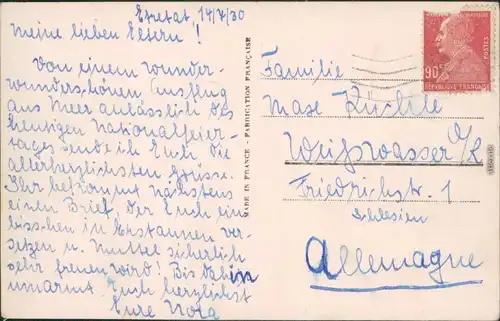 Etretat, 14/7/30
Meine lieben Eltern!
Von einem wunder-
wunderschönen Ausflug
ans Meer anlässlich des
heutigen Nationalfeier-
tages sende ich Euch die
allerherzlichsten Grüsse.
Ihr bekommt nächstens
einen Brief, der Euch ein
bisschen in Erstaunen ver-
setzen u. Muttel sicherlich
sehr freuen wird! Bis dahin
umarmt Euch herzlichst
Eure Nora
MADE IN FRANCE - FABRICATION FRANÇAISE
90c
POSTES
RÉPUBLIQUE FRANÇAISE
Familie
Max
Weisswasser O/L
Friedrichstr. 1
Schlesien
Allemagne